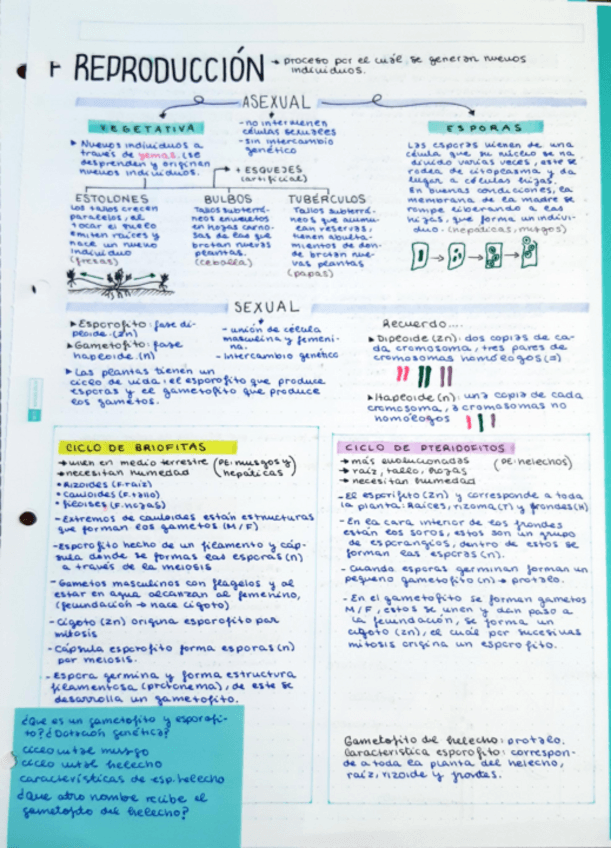 REPRODUCCIÓN → proceso por el cuál se generan nuevos
individuos.
ASEXUAL
- no intervienen
células sexuales
- sin intercambio
genético
VEGETATIVA
▸ Nuevos individuos a
través de yemas. (se
desprenden y originan
nuevos individuos.
→ + ESQUEJES
(artificial)
ESTOLONES
Los tallos crecen
paralelos, al
tocar el suelo
emiten raíces y
nace un nuevo
individuo
(fresas)
BULBOS
Tallos subterrá-
neos envueltos
en hojas carno-
sas de las que
brotan nuevas
plantas.
(cebolla)
TUBÉRCULOS
Tallos subterrá-
neos que acumu-
lan reservas y
tienen abulta-
mientos de don-
de brotan nue-
vas plantas
(papas)
ESPORAS
Las esporas vienen de una
célula que su núcleo se ha
dividido varias veces, este se
rodea de citoplasma y da
lugar a células hijas.
En buenas condiciones, la
membrana de la madre se
rompe liberando a las
hijas, que forma un indivi-
duo. (hepáticas, musgos)
SEXUAL
▸ Esporofito: fase di-
ploide. (2n)
▸ Gametofito: fase
haploide. (n)
▸ Las plantas tienen un
ciclo de vida: el esporofito que produce
esporas y el gametofito que produce
los gametos.
- unión de célula
masculina y femeni-
na.
- intercambio genético
Recuerdo....
▸ Diploide (2n): dos copias de ca-
da cromosoma, tres pares de
cromosomas homólogos
▸ Haploide (n): una copia de cada
cromosoma, 3 cromosomas no
homólogos
CICLO DE BRIOFITAS
→ viven en medio terrestre (PE: musgos y
→ necesitan humedad hepáticas)
• Rizoides (F. raíz)
• Cauloides (F. tallo)
• Filoides (F. hojas)
- Extremos de cauloides están estructuras
que forman los gametos (M/F)
- Esporofito hecho de un filamento y cáp-
sula donde se formas las esporas (n)
a través de la meiosis
- Gametos masculinos con flagelos y al
estar en agua alcanzan al femenino,
(fecundación → nace cigoto)
- Cigoto (2n) origina esporofito por
mitosis
- Cápsula esporofito forma esporas (n)
por meiosis.
- Espora germina y forma estructura
filamentosa (protonema), de este se
desarrolla un gametofito.
CICLO DE PTERIDOFITOS
→ más evolucionadas (PE: helechos)
→ raíz, tallo, hojas
→ necesitan humedad
- El esporifito (2n) y corresponde a toda
la planta: Raíces, rizoma (T) y frondes (H)
- En la cara interior de los frondes
están los soros, estos son un grupo
de esporangios, dentro de estos se
forman las esporas (n).
- Cuando esporas germinan forman un
pequeño gametofito (n) → protalo.
- En el gametofito se forman gametos
M/F, estos se unen y dan paso a
la fecundación, se forma un
cigoto (2n), el cuál por sucesivas
mitosis origina un esporofito.
Gametofito del helecho: protalo.
Característica esporofito: correspon-
de a toda la planta del helecho,
raíz, rizoide y frondes.
¿Que es un gametofito y esporofi-
to? ¿Dotación genética?
ciclo vital musgo
ciclo vital helecho
características de esp. helecho
¿Que otro nombre recibe el
gametofito del helecho?